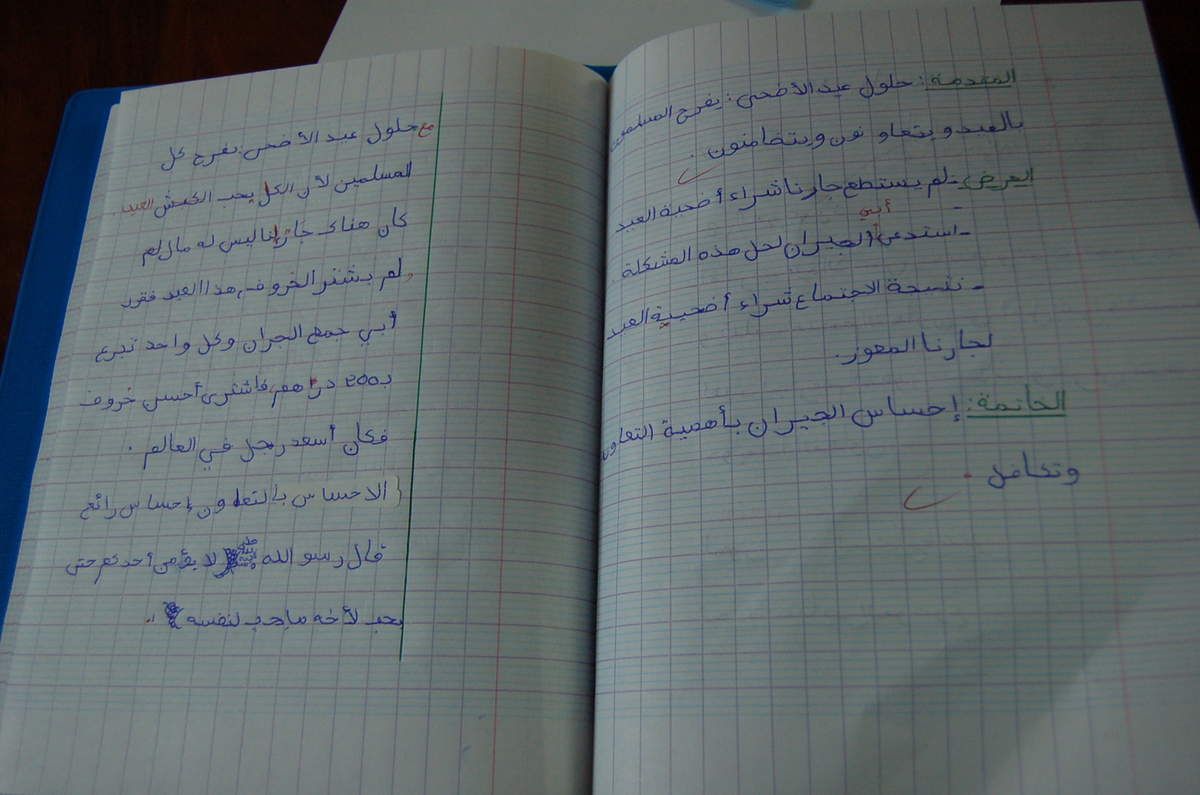 المقدمة: حلول عيد الأضحى: يفرح المسلمون
بالعيد ويتعاونون ويتضامنون.
العرض: - لم يستطع جارنا شراء أضحية العيد
أبي
- استدعى الجيران لحل هذه المشكلة
- نتيجة الاجتماع شراء أضحيية العيد
لجارنا المعوز.
الخاتمة: إحساس الجيران بأهمية التعاون
وتكامل.
مع حلول عيد الأضحى يفرح كل
المسلمين لأن الكل يحب الكبش العيد.
كان هناك جارنا ليس له مال لم
لم يشتر الخروف هذا العيد فقرر
أبي جمع الجران وكل واحد تبرع
ب200 دراهم فاشترى أحسن خروف
فكان أسعد رجل في العالم.
الاحساس بالتعاون إحساس رائع
قال رسو الله ﷺ لا يؤمن أحدكم حتى
يحب لأخه مايحب لنفسه